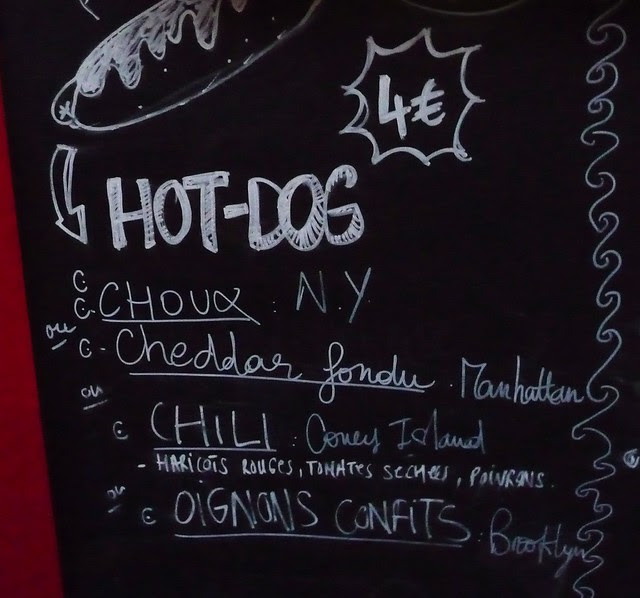 4€
HOT-DOG
CHOUX : N.Y.
ou
- Cheddar fondu . Manhattan
ou
CHILI : Coney Island
- HARICOTS ROUGES, TOMATES SECHEES, POIVRONS.
ou
OIGNONS CONFITS : Brooklyn